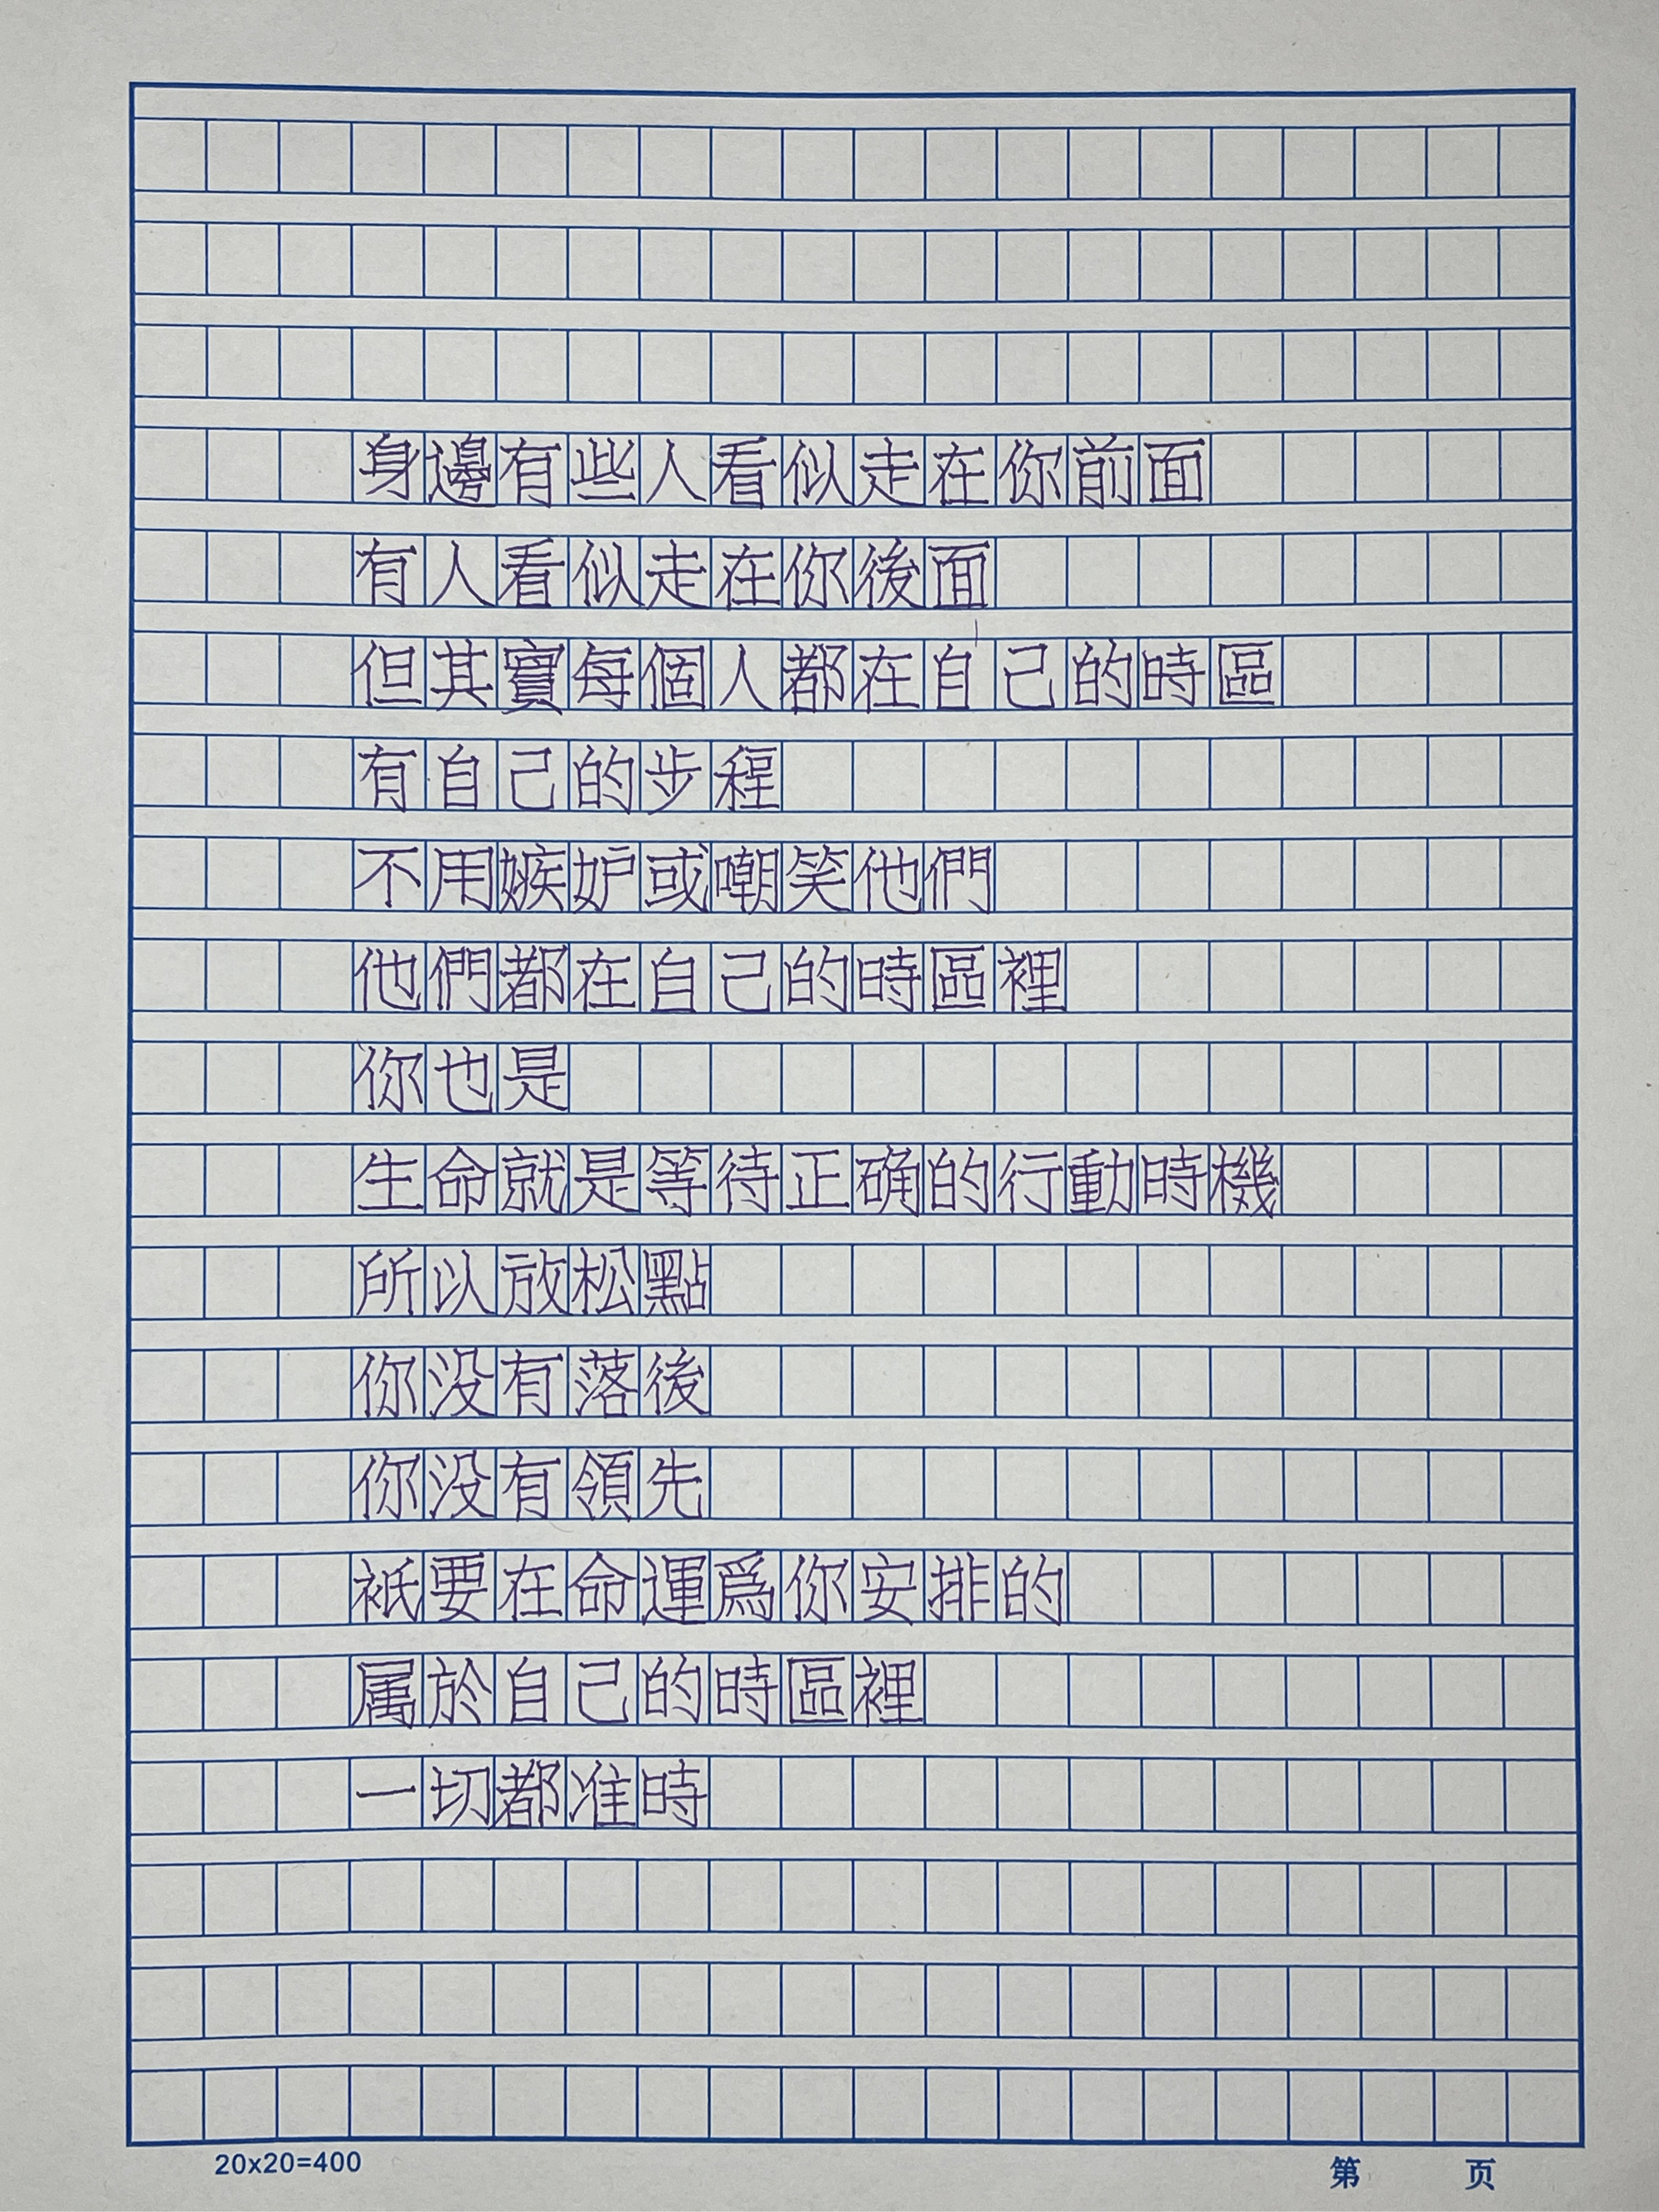 身邊有些人看似走在你前面
有人看似走在你後面
但其實每個人都在自己的時區
有自己的步程
不用嫉妒或嘲笑他們
他們都在自己的時區裡
你也是
生命就是等待正确的行動時機
所以放松點
你没有落後
你没有領先
衹要在命運爲你安排的
属於自己的時區裡
一切都准時
20x20=400
第 页